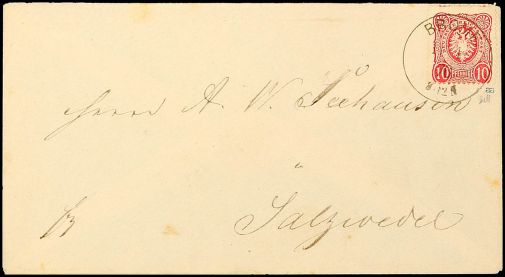 BROME
8-12 N
10 PFENNIG 10
Herrn A. W. Seehausen
in
Salzwedel
fr